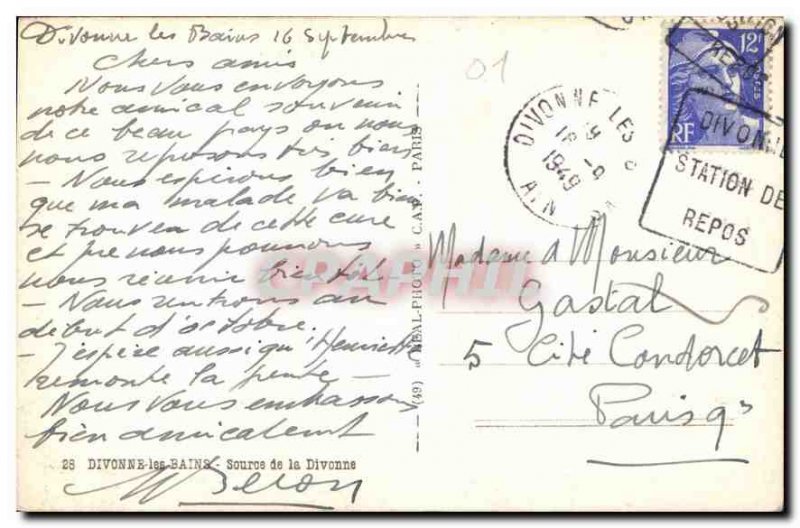 Divonne les Bains 16 Septembre
Chers amis
Nous vous envoyons
notre amical souvenir
de ce beau pays ou nous
nous reposons très bien
- Nous espérons bien
que ma malade va bien
se trouver de cette cure
et que nous pourrons
nous réunir bientôt
- Nous rentrons au
début d'octobre.
- J'espère aussi qu'Henriette
remonte la pente -
Nous vous embrassons
bien amicalement
28 DIVONNE-les-BAINS - Source de la Divonne
(49) « REAL-PHOTO » C.A.P. - PARIS
01
DIVONNE LES
1949
AIN
12F
RF
DIVONNE
STATION DE
REPOS
Madame & Monsieur
Gastal
5 Cité Condorcet
Paris 9e
CPAPHIL